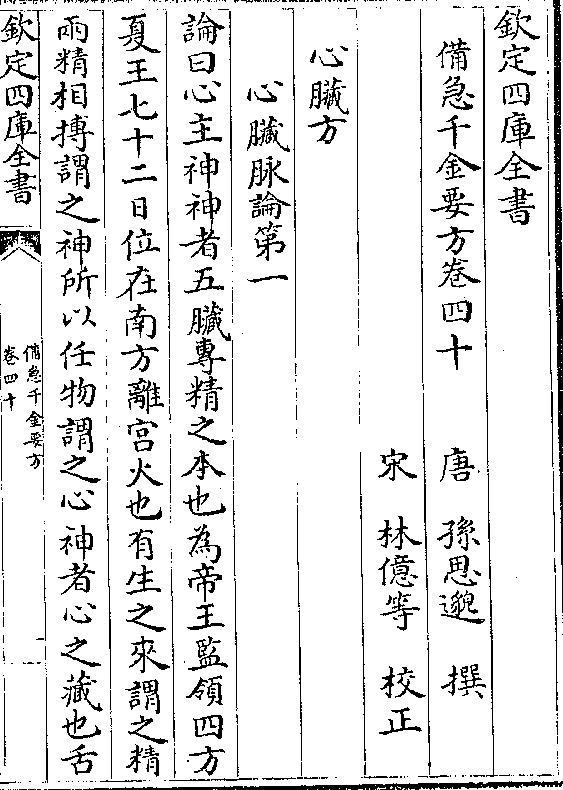 欽定四庫全書
備急千金要方卷四十
唐 孫思邈 撰
宋 林億等 校正
心臟方
心臟脉論第一
論曰心主神神者五臟專精之本也為帝王監領四方
夏王七十二日位在南方離宫火也有生之來謂之精
兩精相搏謂之神所以任物謂之心神者心之藏也舌
欽定四庫全書
備急千金要方
卷四十